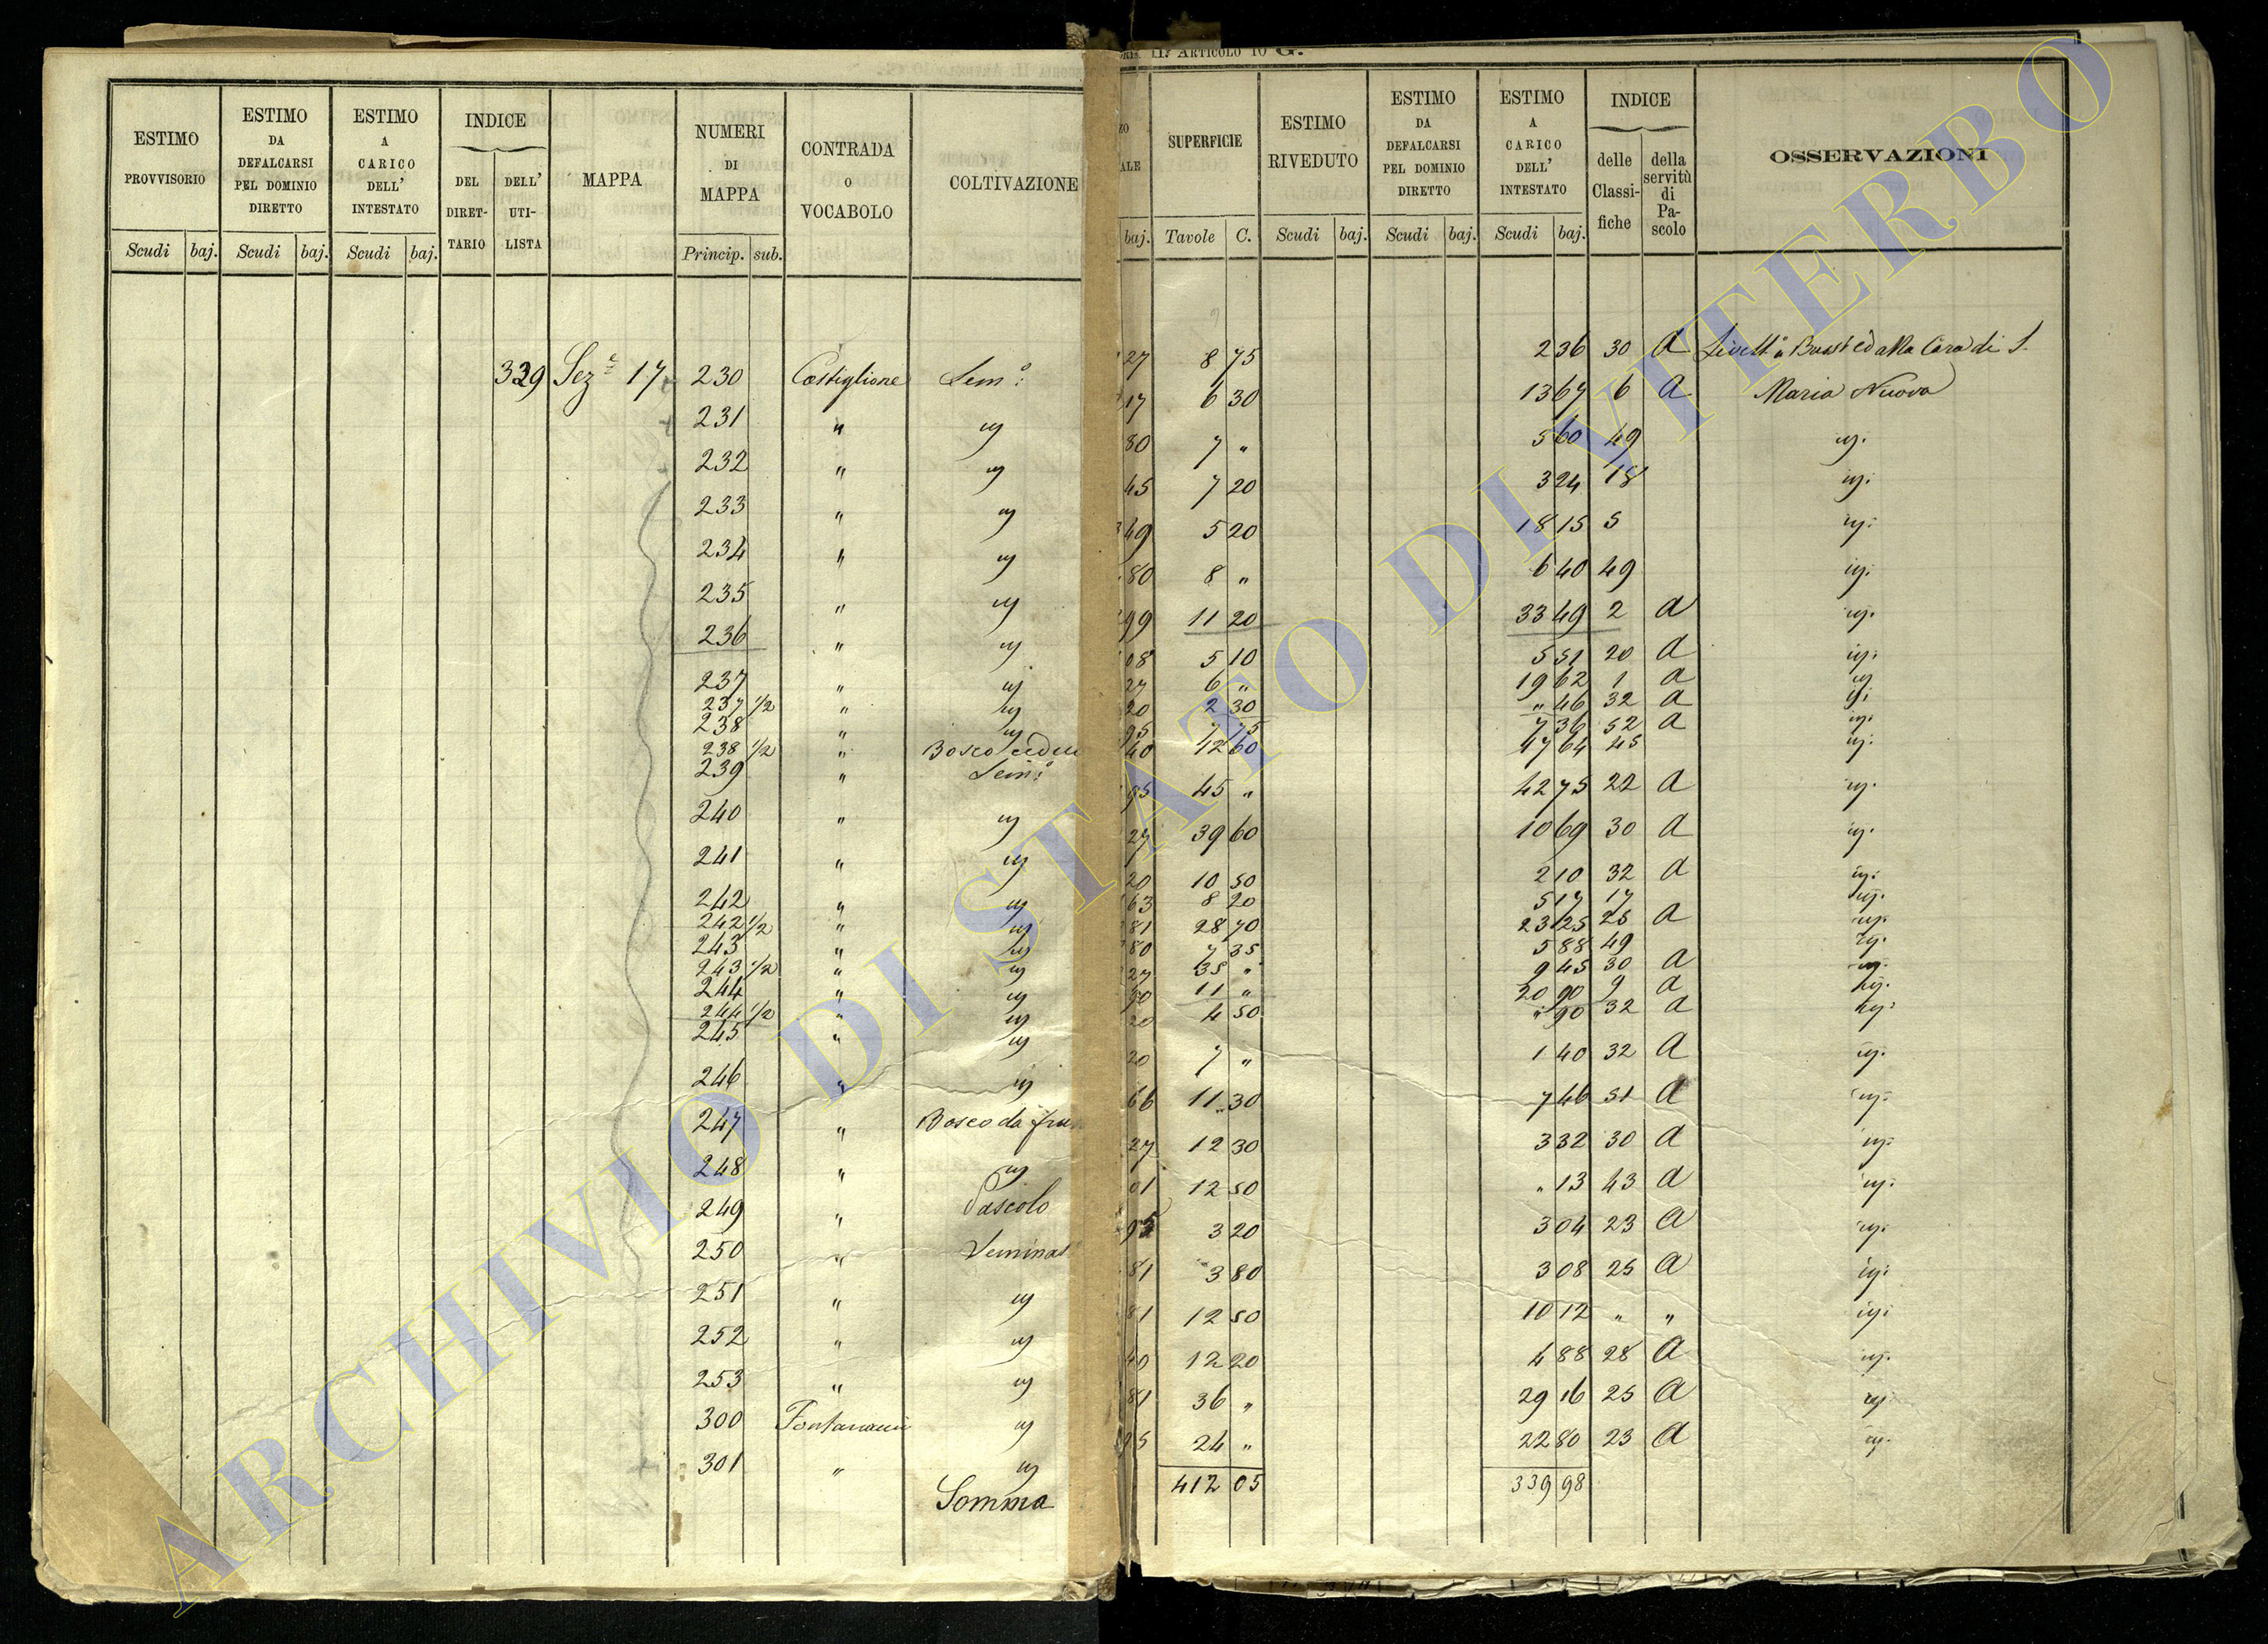 ESTIMO PROVVISORIO
ESTIMO DA DEFALCARSI PEL DOMINIO DIRETTO
ESTIMO A CARICO DELL' INTESTATO
INDICE
DEL DIRETTARIO
DELL' UTILISTA
MAPPA
NUMERI DI MAPPA
CONTRADA O VOCABOLO
COLTIVAZIONE
Scudi baj. Scudi baj. Scudi baj. Princip. sub.
329 Sez.e 17 230 Castiglione Sem.o
231 " uj
232 " uj
233 " uj
234 " uj
235 " uj
236 " uj
237 " uj
237 1/2 " uj
238 " uj
238 1/2 " Bosco cedu
239 " Sem.o
240 " uj
241 " uj
242 " uj
242 1/2 " uj
243 " uj
243 1/2 " uj
244 " uj
244 1/2 " uj
245 " uj
246 " uj
247 " Bosco da frut
248 " uj
249 " Pascolo
250 " Seminat
251 " uj
252 " uj
253 " uj
300 uj
301 " uj
Somma
II.a ARTICOLO 10 G.
ZO
ALE
SUPERFICIE
ESTIMO RIVEDUTO
ESTIMO DA DEFALCARSI PEL DOMINIO DIRETTO
ESTIMO A CARICO DELL' INTESTATO
INDICE
delle Classifiche
della servitù di Pascolo
OSSERVAZIONI
baj. Tavole C. Scudi baj. Scudi baj. Scudi baj.
27 8 75 2 36 30 a Livell.o Bussi ed alla Cura di S.
17 6 30 13 67 6 a Maria Nuova
80 7 " 5 60 49 uj.
45 7 20 3 24 18 uj.
49 5 20 18 15 5 uj.
80 8 " 6 40 49 uj.
99 11 20 33 49 2 a uj.
08 5 10 5 51 20 a uj.
27 6 " 19 62 1 a uj.
20 2 30 " 46 32 a uj.
95 7 75 7 36 52 a uj.
40 42 60 17 64 45 uj.
95 45 " 42 75 22 a uj.
27 39 60 10 69 30 a uj.
20 10 50 2 10 32 a uj.
63 8 20 5 17 17 uj.
81 28 70 23 25 25 a uj.
80 7 35 5 88 49 uj.
27 35 " 9 45 30 a uj.
90 11 " 20 90 9 a uj.
20 4 50 " 90 32 a uj.
20 7 " 1 40 32 a uj.
66 11 30 7 46 51 a uj.
27 12 30 3 32 30 a uj.
01 12 50 " 13 43 a uj.
95 3 20 3 04 23 a uj.
81 3 80 3 08 25 a uj.
81 12 50 10 12 " " uj.
40 12 20 4 88 28 a uj.
81 36 " 29 16 25 a uj.
95 24 " 22 80 23 a uj.
412 05 339 98
ARCHIVIO DI STATO DI VITERBO